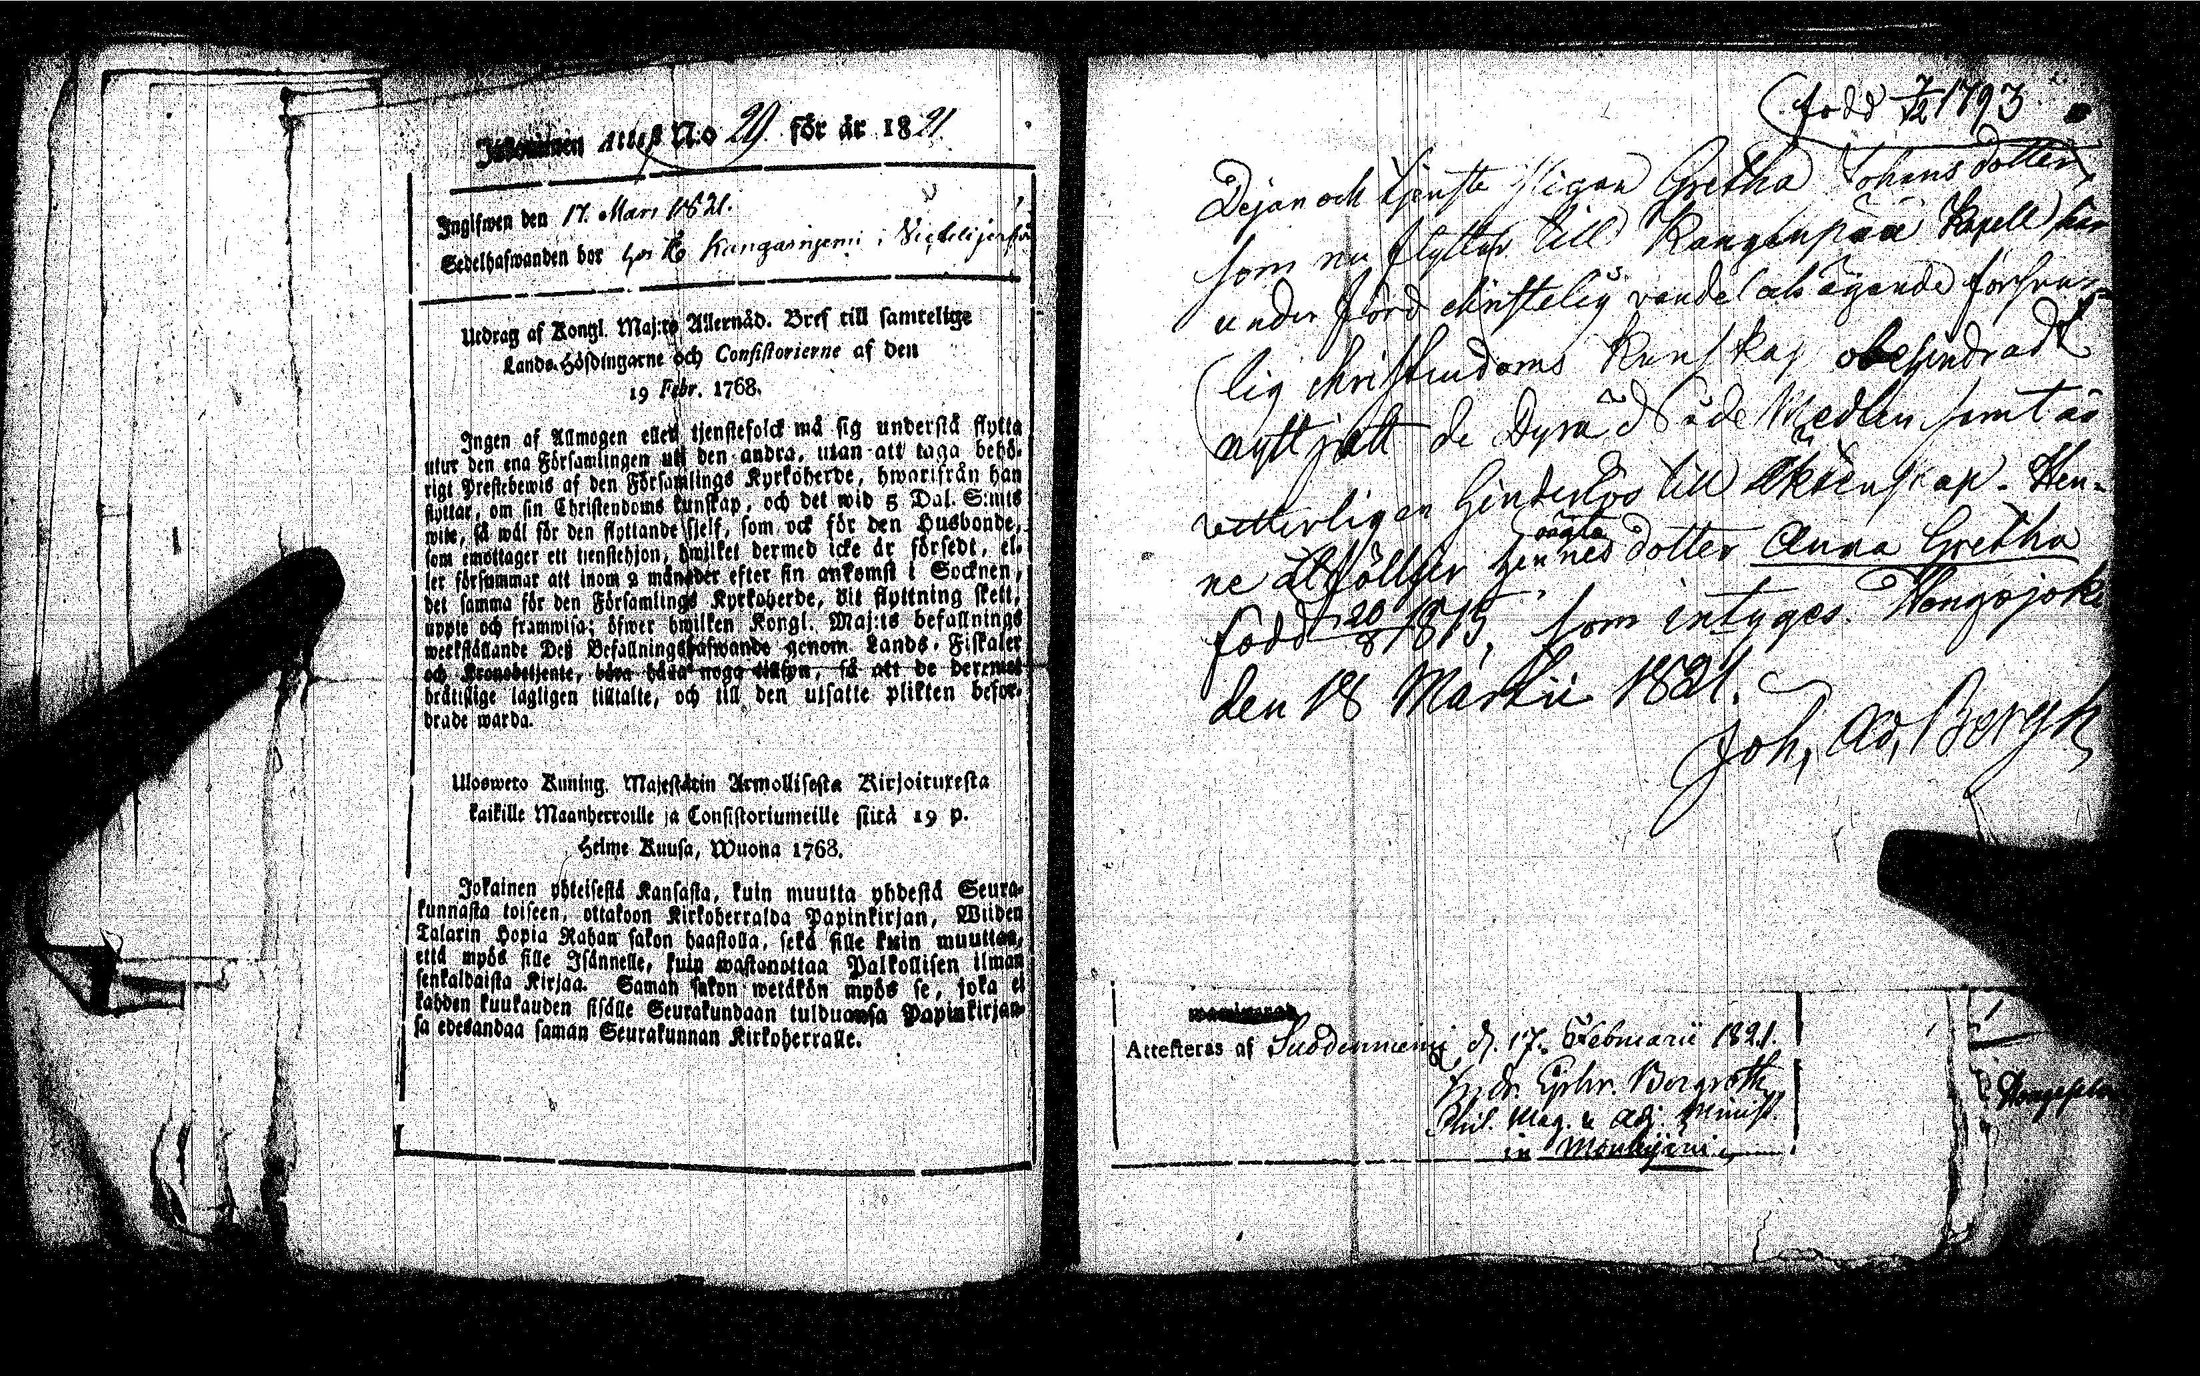 Attest N:o 29. för år 1821.
Ingifwen den 17. Mars 1821.
Sedelhafwanden bor hos Kangasniemi i
Utdrag af Kongl. Maj:ts Allernåd. Bref till samtelige
Lands-Höfdingarne och Consistorierne af den
19 Febr. 1768.
Ingen af Allmogen eller tjenstefolck må sig understå flytta
utur den ena Församlingen uti den andra, utan att taga behö-
rigt Prestebewis af den Församlings Kyrkoherde, hwarifrån han
flyttar, om sin Christendoms kunskap, och det wid 5 Dal. S:mts
wite, så wäl för den flyttande sjelf, som ock för den Husbonde,
som emottager ett tienstehjon, hwilket dermed icke är försedt, el-
ler försummar att inom 2 månader efter sin ankomst i Socknen,
det samma för den Församlings Kyrkoherde, dit flyttning skett,
uppte och framwisa; öfwer hwilken Kongl. Maj:ts befallnings
werkställande Deß Befallningshafwande genom Lands-Fiskaler
och Kronobetjente, böra hafa noga tillsyn, så att de deremot
bråttslige lagligen tilltalte, och till den utsatte plikten befor-
drade warda.
Ulosweto Kuning. Majestätin Armollisesta Kirjoituxesta
kaikille Maanherroille ja Consistoriumeille siitä 19 p.
Helme Kuusa, Wuona 1768.
Jokainen yhteisestä Kansasta, kuin muutta yhdestä Seura-
kunnasta toiseen, ottakoon Kirkoherralda Papinkirjan, Wiiden
Talarin Hopia Rahan sakon haastolla, sekä sille kuin muuttaa,
että myös sille Isännelle, kuin wastanottaa Palkollisen ilman
senkaldaista Kirjaa. Saman sakon wetäkön myös se, joka ei
kahden kuukauden sisälle Seurakundaan tulduansa Papinkirjan-
sa edesandaa saman Seurakunnan Kirkoherralle.
(född 7/12 1793.
Dejan och tjenste Pigan Gretha Johansdotter,
som nu flyttar till Kangaspää Kapell har
under förd christelig vandel och ägande försvar-
lig christendoms kunskap obehindradt
nyttjatt de Dyra Nåde Medlen samt är
vetterligen hinderlös till äktenskap. Hen-
ne åtfölljer hennes oägta dotter Anna Gretha
född 20/8 1815, som intyges. Hongojoki
den 18 Martii 1821.
Joh, Ad, Bergh
Attesteras af Suodenniemi d. 17. Februarii 1821.
Ephr. Bergroth
Phil. Mag. & Adj. Minist.
in Mouhijärvi